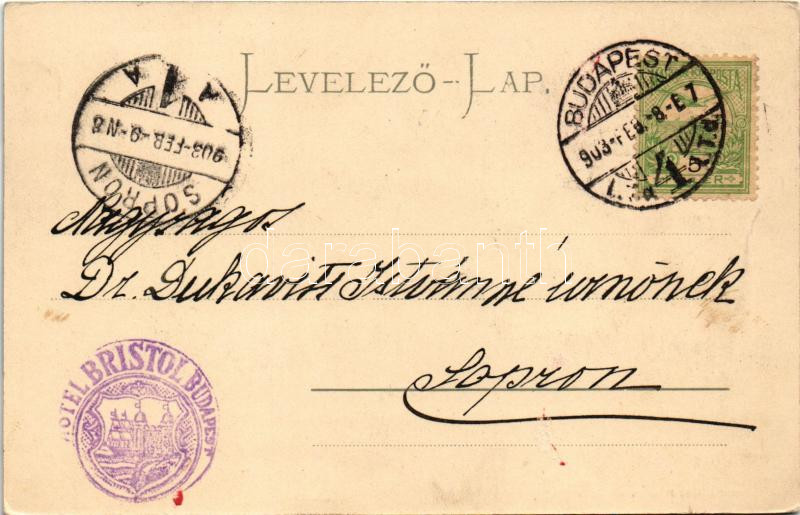 LEVELEZŐ-LAP.
SOPRON
903-FEB.-9.-N8
A 1 A
BUDAPEST
903-FEB.-8.-E.7
POSTA
5
Nagyságos
Dr. Dukavits Istvánné urnőnek
Sopron
HOTEL BRISTOL BUDAPEST
darabanth